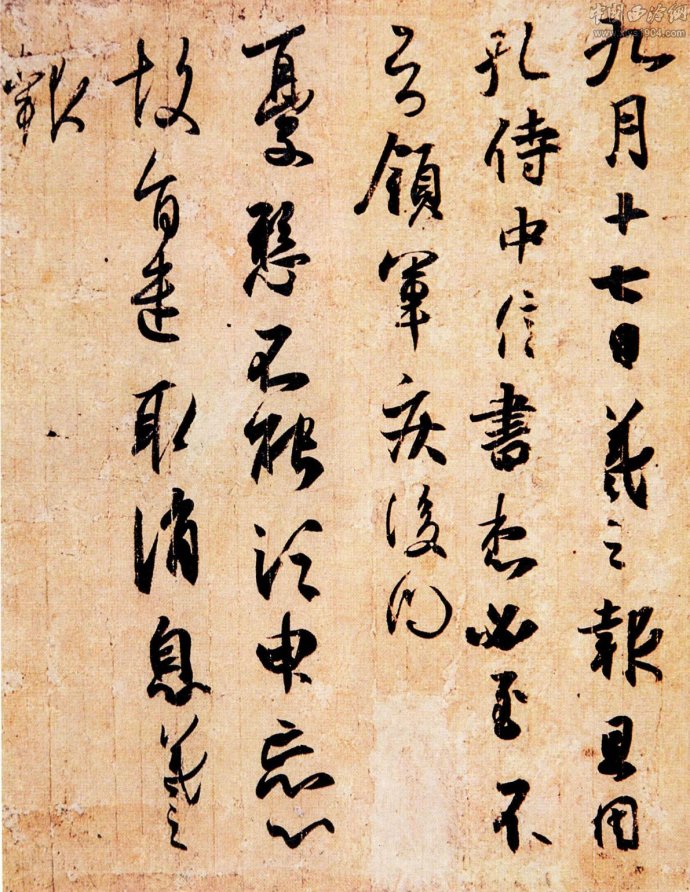 九月十七日羲之報且因
孔侍中信書想必至不
知領軍疾後問
憂懸不能須臾忘心
故旨遣取消息羲之
報
中国西泠网